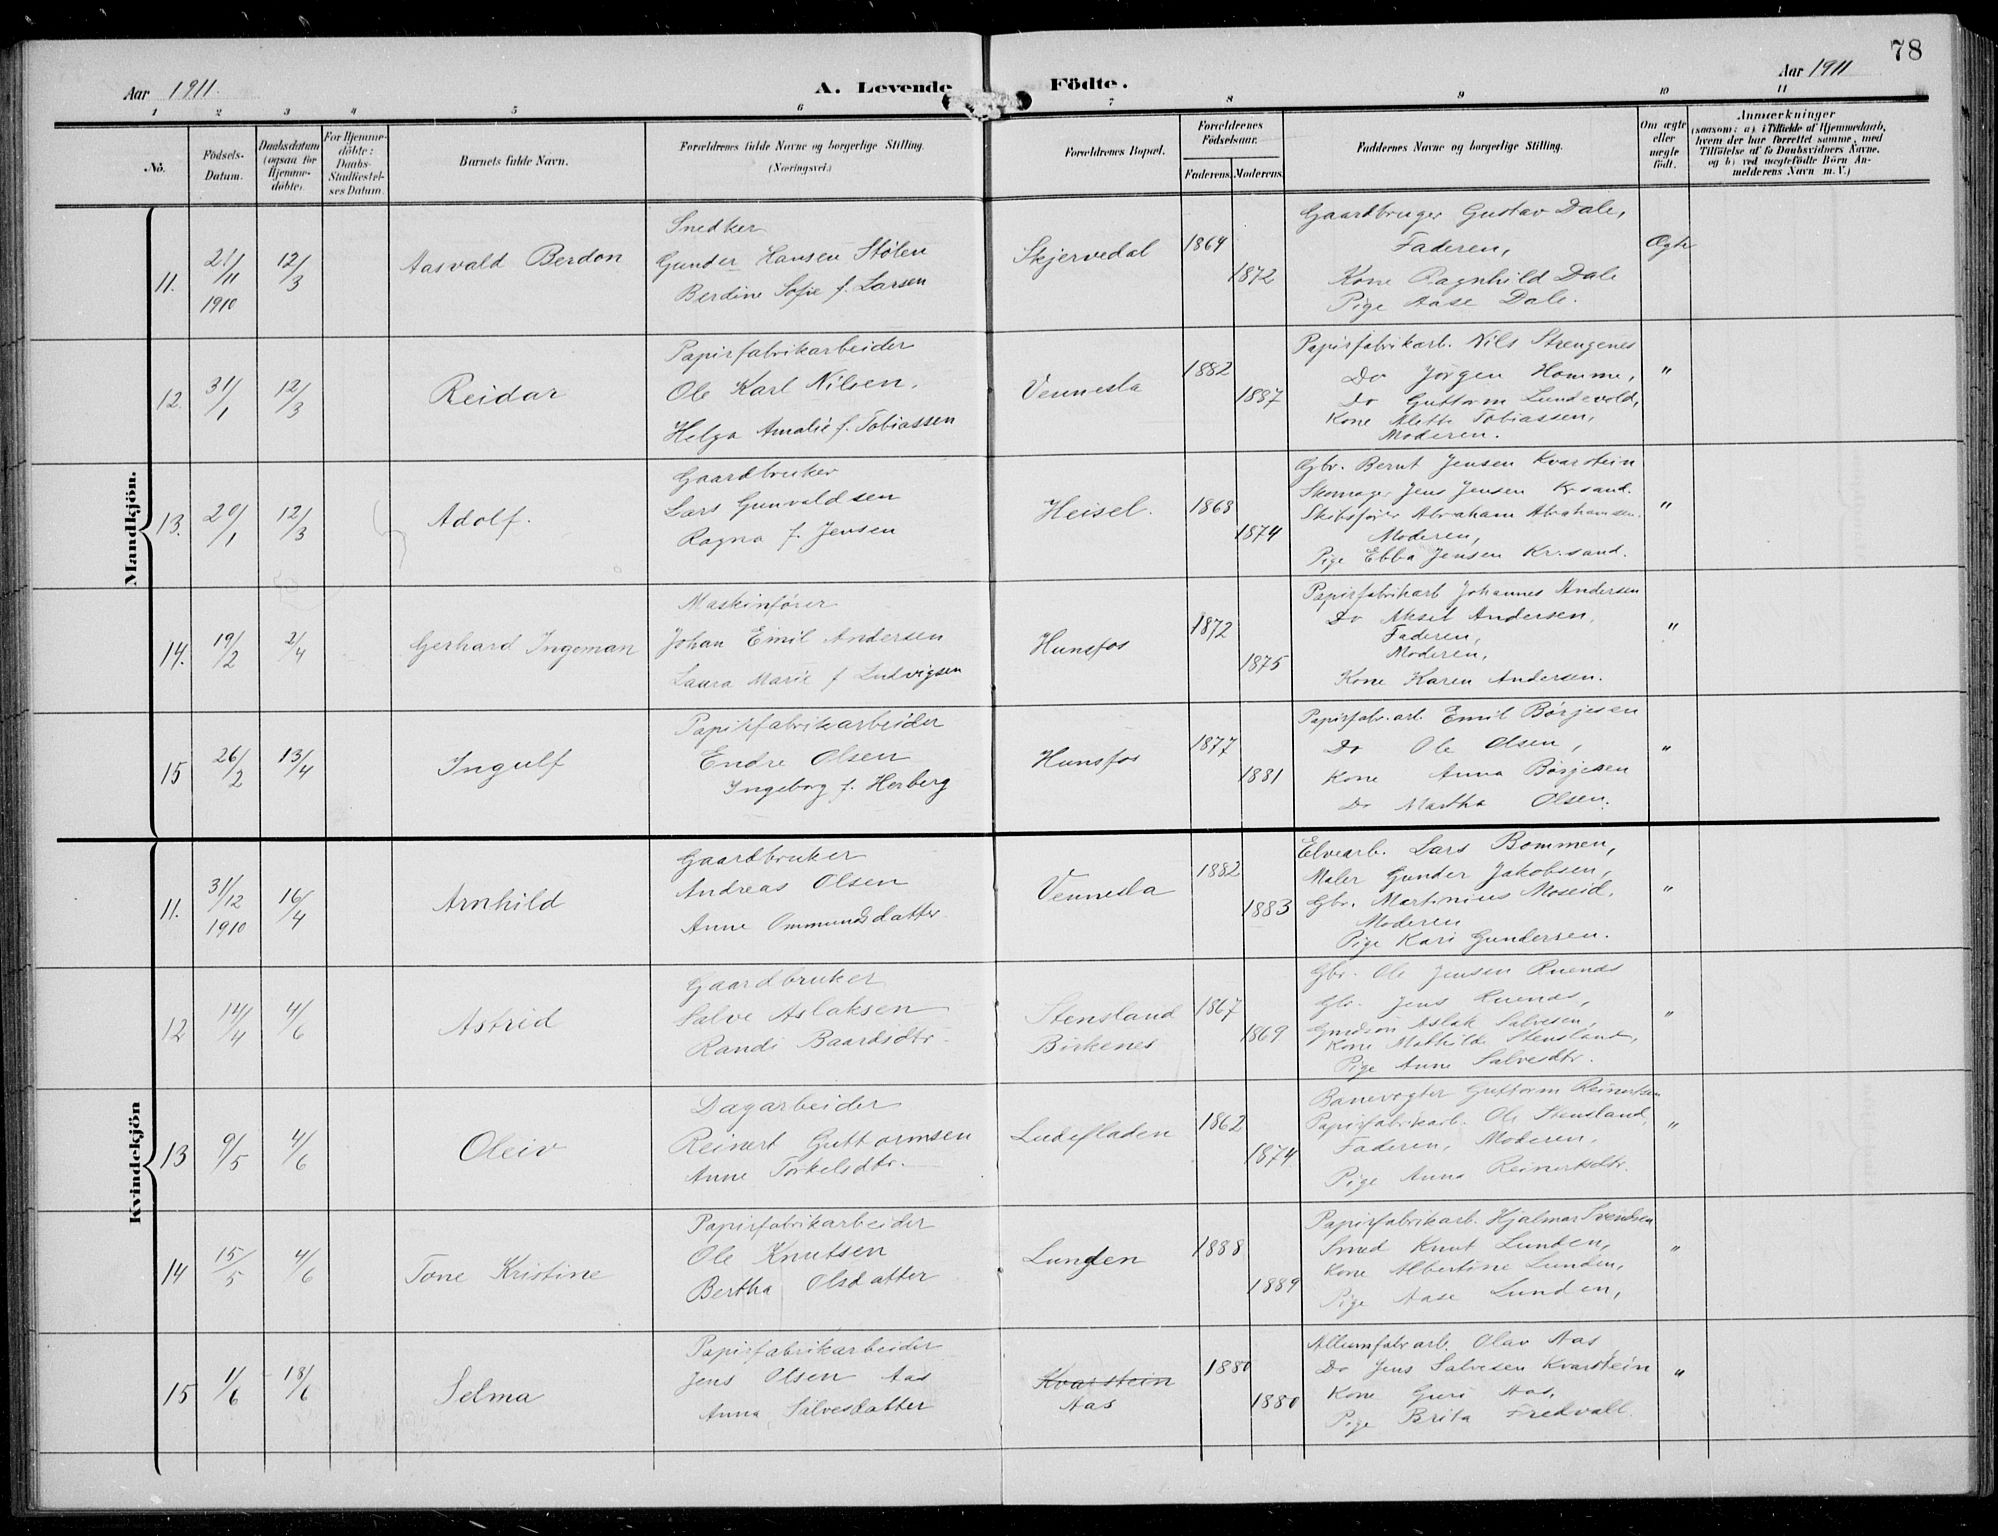 78
Aar 1911.
A. Levende Födte.
Aar 1911
1 2 3 4 5 6 7 8 9 10 11
No.
Födsels-
Datum.
Daabsdatum
(ogsaa for
Hjemme-
döbte).
For Hjemme-
döbte:
Daabs-
Stadfæstel-
ses Datum.
Barnets fulde Navn.
Forældrenes fulde Navne og borgerlige Stilling.
(Næringsvei.)
Forældrenes Bopæl.
Forældrenes
Födselsaar.
Faderens. Moderens.
Faddernes Navne og borgerlige Stilling.
Om ægte
eller
uægte
født.
Anmærkninger
(saasom: a) i Tilfælde af Hjemmedaab,
hvem der har forrettet samme, med
Tilföielse af to Daabsvidners Navne,
og b) ved uægtefödte Börn An-
melderens Navn m. V.)
Mandkjön.
11.
21/11
1910
12/3
Aasvald Berdon
Snedker
Gunder Hansen Stølen
Berdine Sofie f. Larsen
Skjervedal
1864
1872
Gaardbruger Gustav Dale,
Faderen,
Kone Ragnhild Dale
Pige Aase Dale.
Ægte
12.
31/1
12/3
Reidar
Papirfabrikarbeider
Ole Karl Nilsen,
Helga Amalie f. Tobiassen
Vennesla
1882
1887
Papirfabrikarb. Nils Strengenes
Do Jørgen Homme,
Do Guttorm Lundevold,
Kone Alette Tobiassen,
Moderen.
"
13.
20/1
12/3
Adolf.
Gaardbruker
Lars Gunvaldsen
Ragna f. Jensen
Heisel.
1868
1874
Gbr. Bernt Jensen Kvarstein
Skomager Jens Jensen Kr.sand.
Skibsfører Abraham Abrahamsen.
Moderen,
Pige Ebba Jensen Kr.sand.
"
14.
19/2
2/4
Gerhard Ingeman
Maskinfører
Johan Emil Andersen
Laura Marie f Ludvigsen
Hunsfos
1872
1875
Papirfabrikarb Johannes Andersen
Do Aksel Andersen,
Faderen,
Moderen,
Kone Karen Andersen.
"
15
26/2
13/4
Ingulf
Papirfabrikarbeider
Endre Olsen
Ingeborg f. Herberg
Hunsfos
1877
1881
Papirfabr.arb. Emil Børjesen
Do Ole Olsen,
Kone Anna Børjesen
Do Martha Olsen.
"
Kvindekjön
11.
31/12
1910
16/4
Arnhild
Gaardbruker
Andreas Olsen
Anne Ommundsdatter
Vennesla
1882
1883
Elvearb. Lars Bommen,
Maler Gunder Jakobsen,
Gbr. Martinius Moseid,
Moderen
Pige Kari Gundersen.
"
12
14/4
4/6
Astrid
Gaardbruker
Salve Aslaksen
Randi Baardsdtr.
Stensland
Birkenes
1867
1869
Gbr. Ole Jensen Ruends
Gbr. Jens Ruends,
Grdsøn Aslak Salvesen,
Kone Mathilde Stensland,
Pige Anne Salvesdtr.
"
13
9/5
4/6
Oleiv
Dagarbeider
Reinert Guttormsen
Anne Torkelsdtr.
Ludefladen
1862
1874
Banevogter Guttorm Reinertsen
Papirfabrikarb. Ole Stensland,
Faderen, Moderen,
Pige Anna Reinertsdtr.
"
14
15/5
4/6
Tone Kristine
Papirfabrikarbeider
Ole Knutsen
Bertha Olsdatter
Lunden
1888
1889
Papirfabrikarb. Hjalmar Svendsen
Smed Knut Lunden,
Kone Albertine Lunden,
Pige Aase Lunden,
"
15
1/6
18/6
Selma
Papirfabrikarbeider
Jens Olsen Aas
Anna Salvesdatter
Kvarstein
Aas
1880
1880
Allumfabr.arb. Olav Aas,
Do Jens Salvesen Kvarstein
Kone Guri Aas,
Pige Brita Fredvall.
"